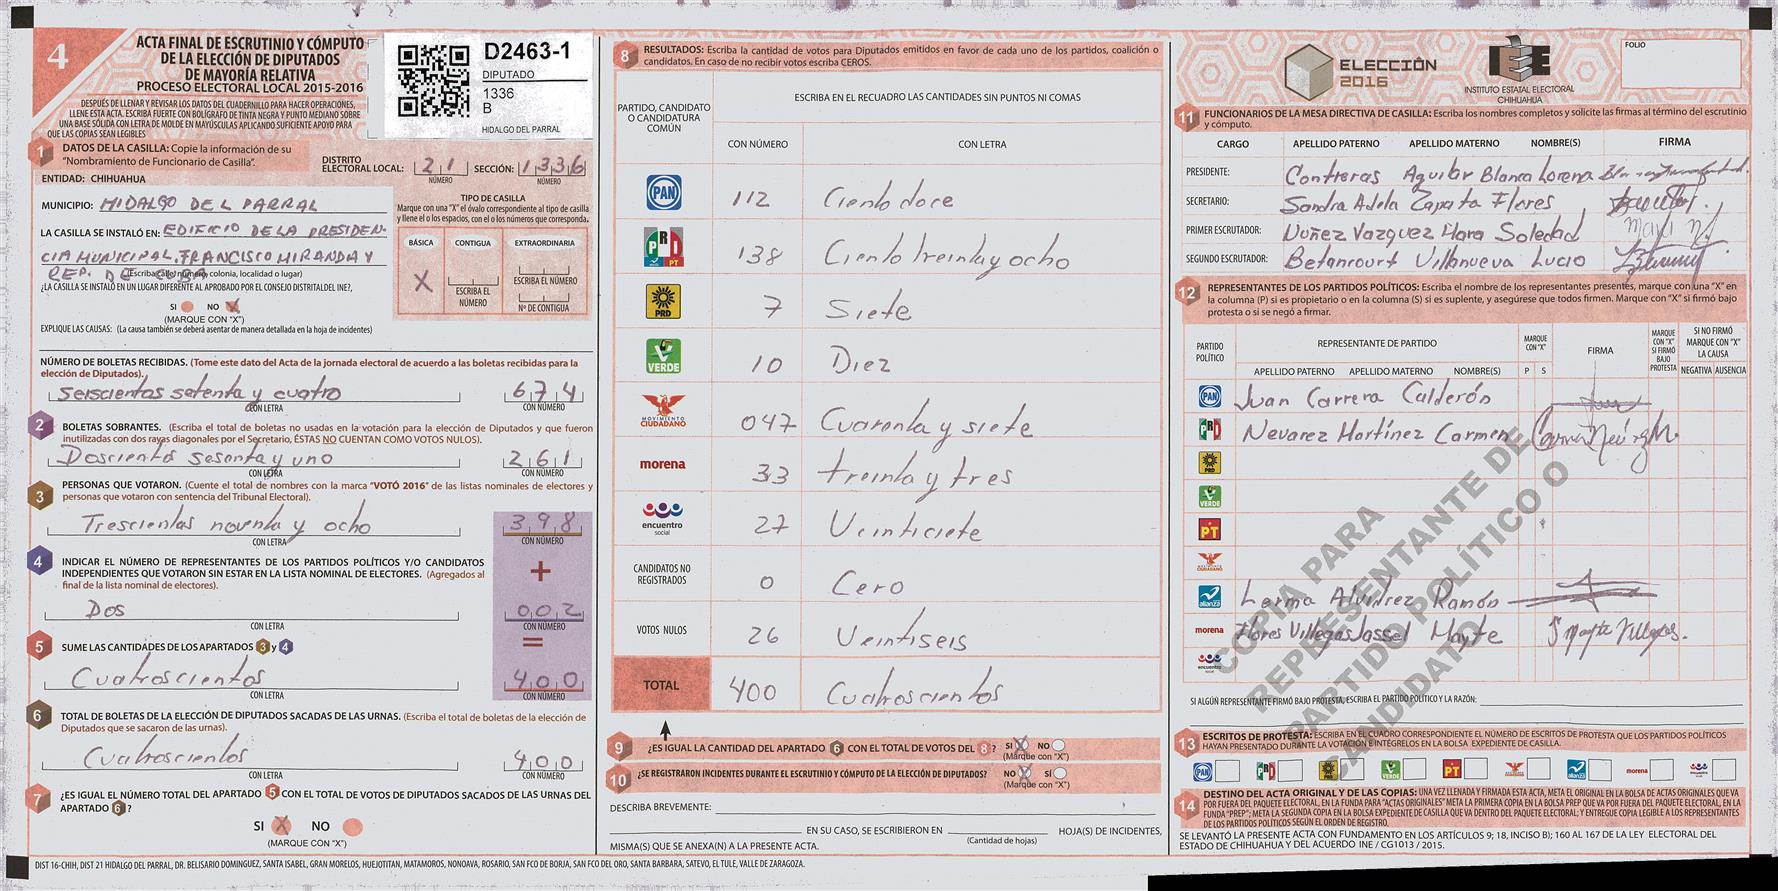 4
ACTA FINAL DE ESCRUTINIO Y CÓMPUTO
DE LA ELECCIÓN DE DIPUTADOS
DE MAYORÍA RELATIVA
PROCESO ELECTORAL LOCAL 2015-2016
DESPUÉS DE LLENAR Y REVISAR LOS DATOS DEL CUADERNILLO PARA HACER OPERACIONES,
LLENE ESTA ACTA. ESCRIBA FUERTE CON BOLÍGRAFO DE TINTA NEGRA Y PUNTO MEDIANO SOBRE
UNA BASE SÓLIDA CON LETRA DE MOLDE EN MAYÚSCULAS APLICANDO SUFICIENTE APOYO PARA
QUE LAS COPIAS SEAN LEGIBLES
D2463-1
DIPUTADO
1336
B
HIDALGO DEL PARRAL
1 DATOS DE LA CASILLA: Copie la información de su
"Nombramiento de Funcionario de Casilla".
DISTRITO
ELECTORAL LOCAL: 21 SECCIÓN: 1336
NÚMERO NÚMERO
ENTIDAD: CHIHUAHUA
MUNICIPIO: HIDALGO DEL PARRAL
LA CASILLA SE INSTALÓ EN: EDIFICIO DE LA PRESIDEN-
CIA MUNICIPAL, FRANCISCO MIRANDA Y
REP. DE CUBA
(Escriba calle, número, colonia, localidad o lugar)
¿LA CASILLA SE INSTALÓ EN UN LUGAR DIFERENTE AL APROBADO POR EL CONSEJO DISTRITAL DEL INE?,
SI NO X
(MARQUE CON "X")
EXPLIQUE LAS CAUSAS: (La causa también se deberá asentar de manera detallada en la hoja de incidentes)
TIPO DE CASILLA
Marque con una "X" el óvalo correspondiente al tipo de casilla
y llene el o los espacios, con el o los números que corresponda.
BÁSICA CONTIGUA EXTRAORDINARIA
X
ESCRIBA EL NÚMERO
ESCRIBA EL NÚMERO
Nº DE CONTIGUA
NÚMERO DE BOLETAS RECIBIDAS. (Tome este dato del Acta de la jornada electoral de acuerdo a las boletas recibidas para la
elección de Diputados).
seiscientas setenta y cuatro 674
CON LETRA CON NÚMERO
2 BOLETAS SOBRANTES. (Escriba el total de boletas no usadas en la votación para la elección de Diputados y que fueron
inutilizadas con dos rayas diagonales por el Secretario, ÉSTAS NO CUENTAN COMO VOTOS NULOS).
Doscientos sesenta y uno 261
CON LETRA CON NÚMERO
3 PERSONAS QUE VOTARON. (Cuente el total de nombres con la marca "VOTÓ 2016" de las listas nominales de electores y
personas que votaron con sentencia del Tribunal Electoral).
Trescientas noventa y ocho 398
CON LETRA CON NÚMERO
4 INDICAR EL NÚMERO DE REPRESENTANTES DE LOS PARTIDOS POLÍTICOS Y/O CANDIDATOS
INDEPENDIENTES QUE VOTARON SIN ESTAR EN LA LISTA NOMINAL DE ELECTORES. (Agregados al
final de la lista nominal de electores).
+
Dos 002
CON LETRA CON NÚMERO
5 SUME LAS CANTIDADES DE LOS APARTADOS 3 y 4
=
Cuatroscientos 400
CON LETRA CON NÚMERO
6 TOTAL DE BOLETAS DE LA ELECCIÓN DE DIPUTADOS SACADAS DE LAS URNAS. (Escriba el total de boletas de la elección de
Diputados que se sacaron de las urnas).
Cuatroscientos 400
CON LETRA CON NÚMERO
7 ¿ES IGUAL EL NÚMERO TOTAL DEL APARTADO 5 CON EL TOTAL DE VOTOS DE DIPUTADOS SACADOS DE LAS URNAS DEL
APARTADO 6?
SI X NO
(MARQUE CON "X")
DIST 16-CHIH, DIST 21 HIDALGO DEL PARRAL, DR. BELISARIO DOMINGUEZ, SANTA ISABEL, GRAN MORELOS, HUEJOTITAN, MATAMOROS, NONOAVA, ROSARIO, SAN FCO DE BORJA, SAN FCO DEL ORO, SANTA BARBARA, SATEVO, EL TULE, VALLE DE ZARAGOZA.
8 RESULTADOS: Escriba la cantidad de votos para Diputados emitidos en favor de cada uno de los partidos, coalición o
candidatos. En caso de no recibir votos escriba CEROS.
PARTIDO, CANDIDATO
O CANDIDATURA
COMÚN
ESCRIBA EN EL RECUADRO LAS CANTIDADES SIN PUNTOS NI COMAS
CON NÚMERO CON LETRA
PAN 112 Ciento doce
PRI PT 138 Ciento treinta y ocho
PRD 7 Siete
VERDE 10 Diez
MOVIMIENTO CIUDADANO 047 Cuarenta y siete
morena 33 treinta y tres
encuentro social 27 Veinticiete
CANDIDATOS NO REGISTRADOS 0 Cero
VOTOS NULOS 26 Veintiseis
TOTAL 400 Cuatroscientos
9 ¿ES IGUAL LA CANTIDAD DEL APARTADO 6 CON EL TOTAL DE VOTOS DEL 8? SI X NO
(Marque con "X")
10 ¿SE REGISTRARON INCIDENTES DURANTE EL ESCRUTINIO Y CÓMPUTO DE LA ELECCIÓN DE DIPUTADOS? NO X SI
(Marque con "X")
DESCRIBA BREVEMENTE:
EN SU CASO, SE ESCRIBIERON EN HOJA(S) DE INCIDENTES,
(Cantidad de hojas)
MISMA(S) QUE SE ANEXA(N) A LA PRESENTE ACTA.
ELECCIÓN
2016
IEE
INSTITUTO ESTATAL ELECTORAL
CHIHUAHUA
FOLIO
11 FUNCIONARIOS DE LA MESA DIRECTIVA DE CASILLA: Escriba los nombres completos y solicite las firmas al término del escrutinio
y cómputo.
CARGO APELLIDO PATERNO APELLIDO MATERNO NOMBRE(S) FIRMA
PRESIDENTE: Contreras Aguilar Blanca Lorena
SECRETARIO: Sandra Adela Zapata Flores
PRIMER ESCRUTADOR: Nuñez Vazquez Mara Soledad
SEGUNDO ESCRUTADOR: Betancourt Villanueva Lucio
12 REPRESENTANTES DE LOS PARTIDOS POLÍTICOS: Escriba el nombre de los representantes presentes, marque con una "X" en
la columna (P) si es propietario o en la columna (S) si es suplente, y asegúrese que todos firmen. Marque con "X" si firmó bajo
protesta o si se negó a firmar.
PARTIDO POLÍTICO
REPRESENTANTE DE PARTIDO
MARQUE CON "X"
FIRMA
MARQUE CON "X" SI FIRMÓ BAJO PROTESTA
SI NO FIRMÓ MARQUE CON "X" LA CAUSA
APELLIDO PATERNO APELLIDO MATERNO NOMBRE(S) P S NEGATIVA AUSENCIA
PAN Juan Carrera Calderón
PRI Nevarez Martínez Carmen
PRD
VERDE
PT
MOVIMIENTO CIUDADANO
alianza Lerma Alvidrez Ramón
morena Flores Villegas Jassel Mayte
encuentro social
COPIA PARA
REPRESENTANTE DE
PARTIDO POLÍTICO O
CANDIDATO
SI ALGÚN REPRESENTANTE FIRMÓ BAJO PROTESTA, ESCRIBA EL PARTIDO POLÍTICO Y LA RAZÓN:
13 ESCRITOS DE PROTESTA: ESCRIBA EN EL CUADRO CORRESPONDIENTE EL NÚMERO DE ESCRITOS DE PROTESTA QUE LOS PARTIDOS POLÍTICOS
HAYAN PRESENTADO DURANTE LA VOTACIÓN E INTÉGRELOS EN LA BOLSA EXPEDIENTE DE CASILLA.
PAN PRI PRD VERDE PT alianza morena
14 DESTINO DEL ACTA ORIGINAL Y DE LAS COPIAS: UNA VEZ LLENADA Y FIRMADA ESTA ACTA, META EL ORIGINAL EN LA BOLSA DE ACTAS ORIGINALES QUE VA
POR FUERA DEL PAQUETE ELECTORAL, EN LA FUNDA PARA "ACTAS ORIGINALES" META LA PRIMERA COPIA EN LA BOLSA PREP QUE VA POR FUERA DEL PAQUETE ELECTORAL, EN LA
FUNDA "PREP"; META LA SEGUNDA COPIA EN LA BOLSA EXPEDIENTE DE CASILLA QUE VA DENTRO DEL PAQUETE ELECTORAL; Y ENTREGUE COPIA LEGIBLE A LOS REPRESENTANTES
DE LOS PARTIDOS POLÍTICOS SEGÚN EL ORDEN DE REGISTRO.
SE LEVANTÓ LA PRESENTE ACTA CON FUNDAMENTO EN LOS ARTÍCULOS 9; 18, INCISO B); 160 AL 167 DE LA LEY ELECTORAL DEL
ESTADO DE CHIHUAHUA Y DEL ACUERDO INE / CG1013 / 2015.